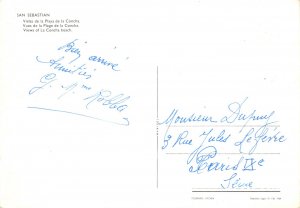 SAN SEBASTIAN
Vistas de la Playa de la Concha.
Vues de la Plage de la Concha.
Views of La Concha beach.
Bien arrivé
Amitiés
G. Mme Robba
Monsieur Dupuy
3 Rue Jules Lefèvre
Paris IXe
Seine